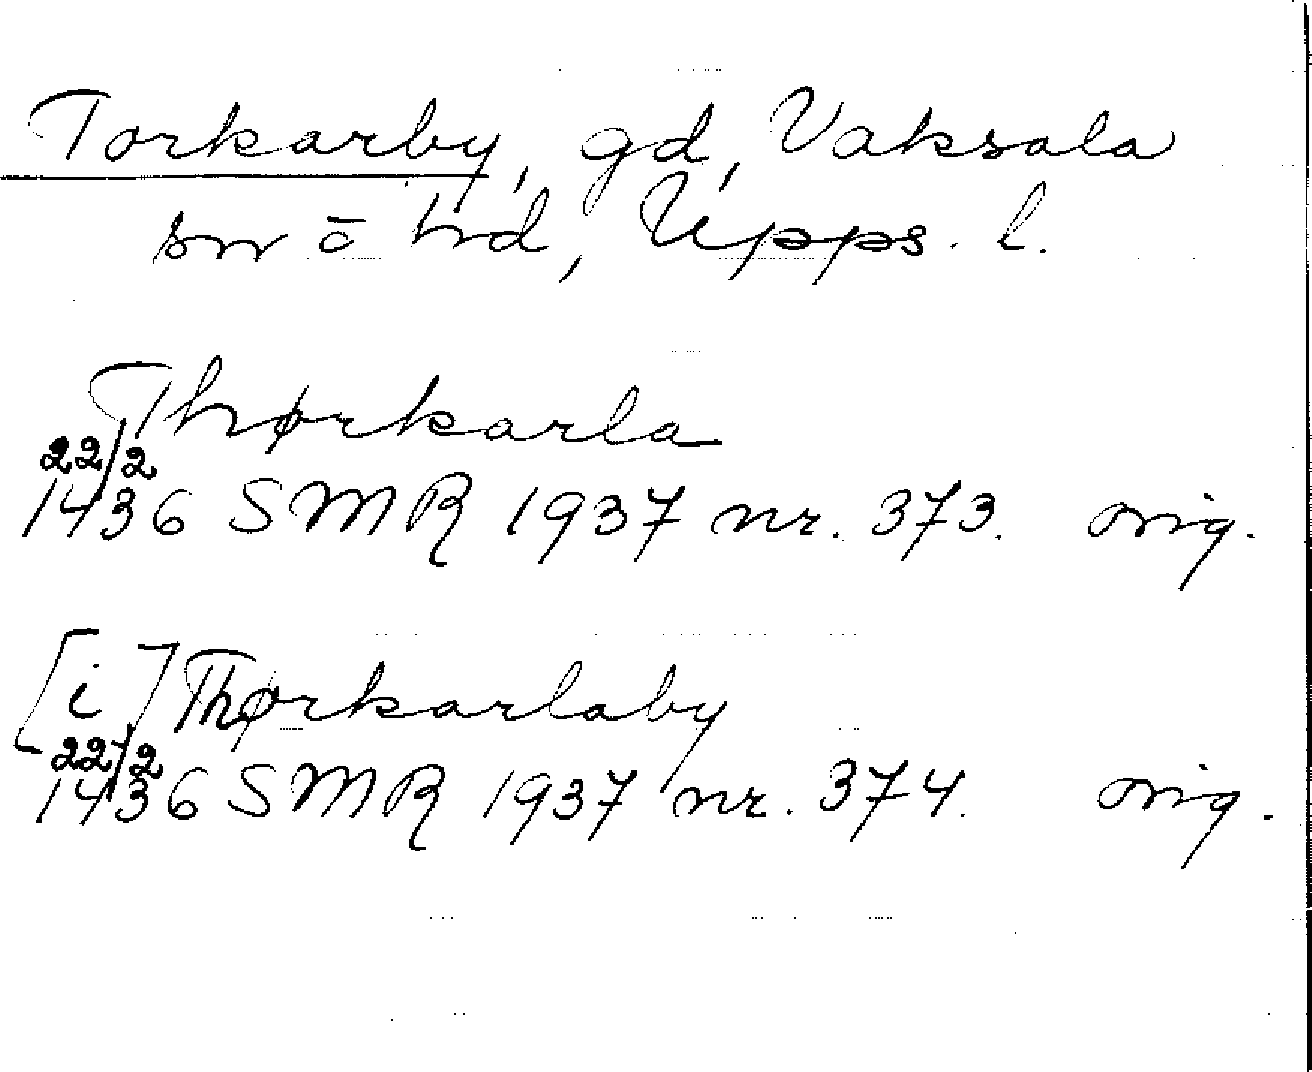 Torkarby, gd, Vaksala
sn o hd, Upps. l.
Thørkarla
22/2
1436 SMR 1937 nr. 373. orig.
[i] Thørkarlaby
22/2
1436 SMR 1937 nr. 374. orig.